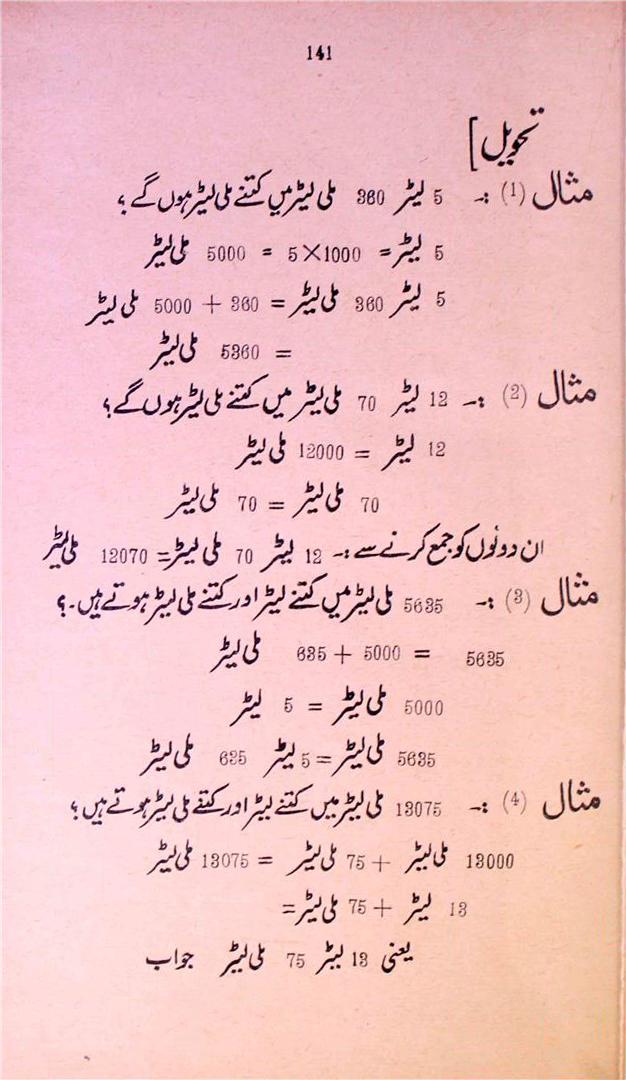 141
تحویل]
مثال (1) :۔ 5 لیٹر 360 ملی لیٹر میں کتنے ملی لیٹر ہوں گے ؟
5 لیٹر = 5×1000 = 5000 ملی لیٹر
5 لیٹر 360 ملی لیٹر = 360 + 5000 ملی لیٹر
= 5360 ملی لیٹر
مثال (2) :۔ 12 لیٹر 70 ملی لیٹر میں کتنے ملی لیٹر ہوں گے ؟
12 لیٹر = 12000 ملی لیٹر
70 ملی لیٹر = 70 ملی لیٹر
ان دونوں کو جمع کرنے سے :۔ 12 لیٹر 70 ملی لیٹر = 12070 ملی لیٹر
مثال (3) :۔ 5635 ملی لیٹر میں کتنے لیٹر اور کتنے ملی لیٹر ہوتے ہیں ۔؟
5635 = 5000 + 635 ملی لیٹر
5000 ملی لیٹر = 5 لیٹر
5635 ملی لیٹر = 5 لیٹر 635 ملی لیٹر
مثال (4) :۔ 13075 ملی لیٹر میں کتنے لیٹر اور کتنے ملی لیٹر ہوتے ہیں ؟
13000 ملی لیٹر + 75 ملی لیٹر = 13075 ملی لیٹر
13 لیٹر + 75 ملی لیٹر =
یعنی 13 لیٹر 75 ملی لیٹر جواب